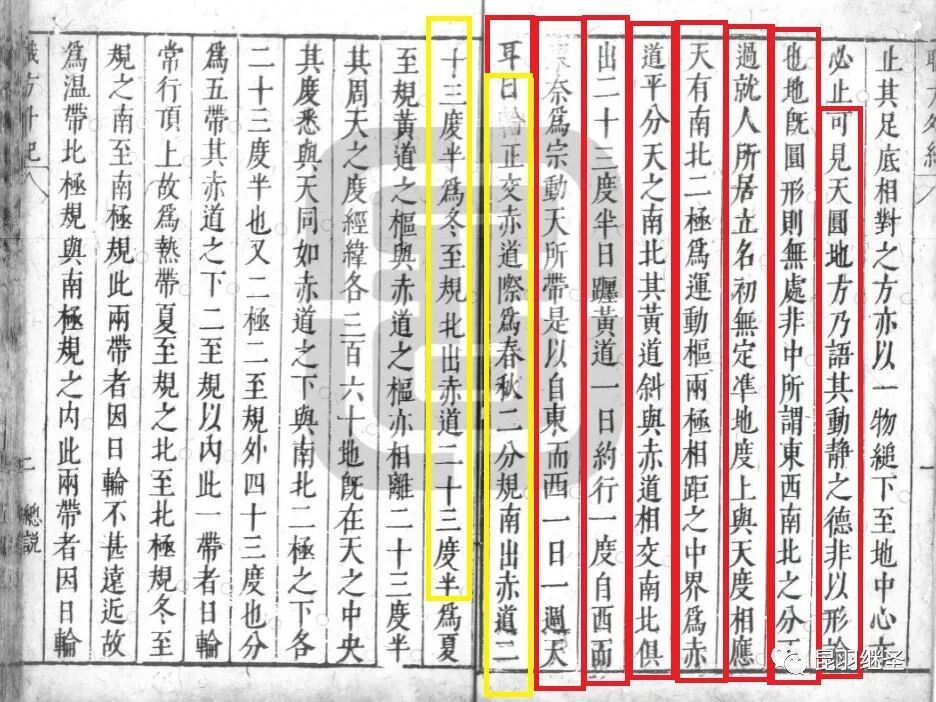 職方外紀
止其足底相對之方亦以一物縋下至地中心亦
必止可見天圓地方乃語其動靜之德非以形論
也地既圓形則無處非中所謂東西南北之分不
過就人所居立名初無定準地度上與天度相應
天有南北二極爲運動樞兩極相距之中界爲赤
道平分天之南北其黃道斜與赤道相交南北俱
出二十三度半日躔黃道一日約行一度自西而
東奈爲宗動天所帶是以自東而西一日一週天
耳日輪正交赤道際爲春秋二分規南出赤道二
十三度半爲冬至規北出赤道二十三度半爲夏
至規黃道之樞與赤道之樞亦相離二十三度半
其周天之度經緯各三百六十地既在天之中央
其度悉與天同如赤道之下與南北二極之下各
二十三度半也又二極二至規外四十三度也分
爲五帶其赤道之下二至規以內此一帶者日輪
常行頂上故爲熱帶夏至規之北至北極規冬至
規之南至南極規此兩帶者因日輪不甚遠近故
爲溫帶北極規與南極規之內此兩帶者因日輪
職方外紀
二
總說
昆羽继圣